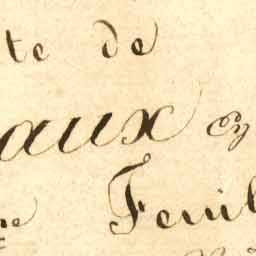 te de
aux cy
re Feuil